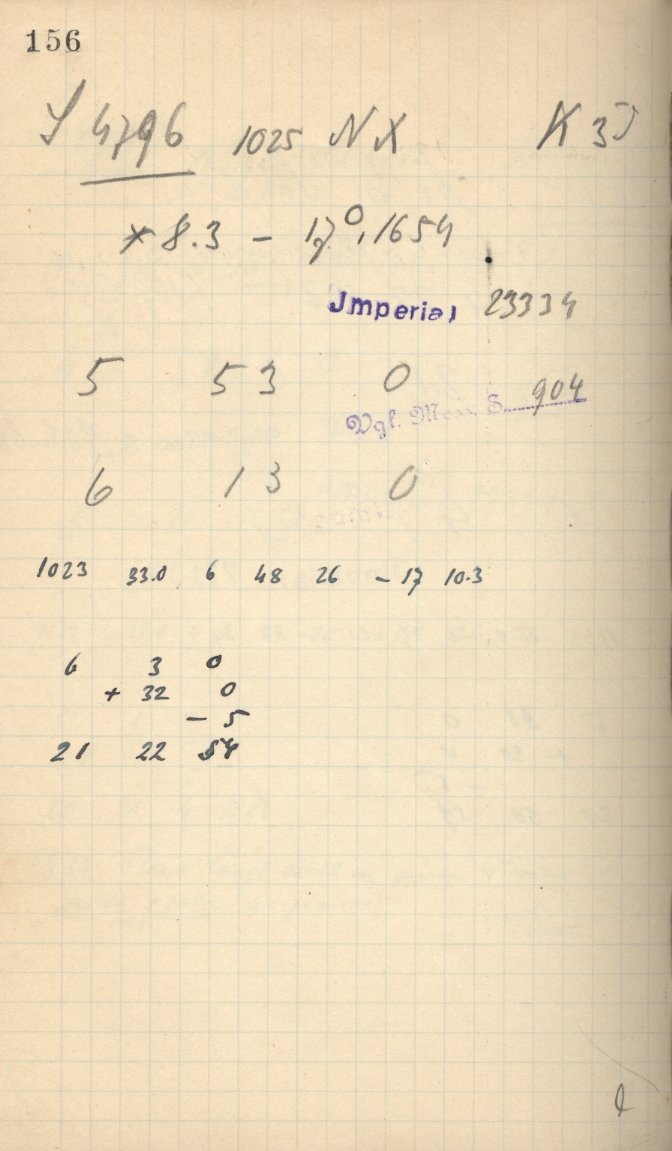 156
S 4796 1025 NX K 3J
* 8.3 - 17°,1654
Jmperial 23334
5 53 0
Vgl. Mess S. 904
6 13 0
1023 33.0 6 48 26 - 17 10.3
6 3 0
+ 32 0
- 5
21 22 54